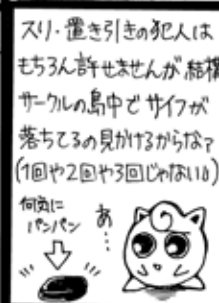 スリ・置き引きの犯人は
もちろん許せませんが結構
サークルの島中でサイフが
落ちてるの見かけるからなァ
(1回や2回や3回じゃない💧)
何気に
パンパン
あ
…